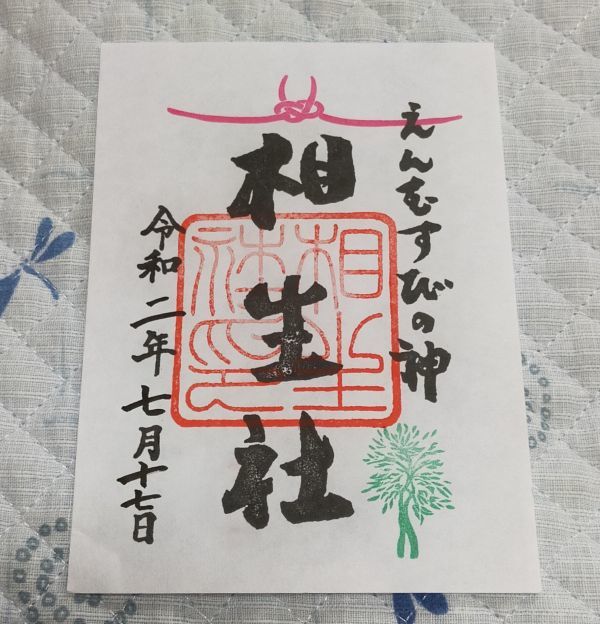 えんむすびの神
相生社
令和二年七月十七日
相生
社之